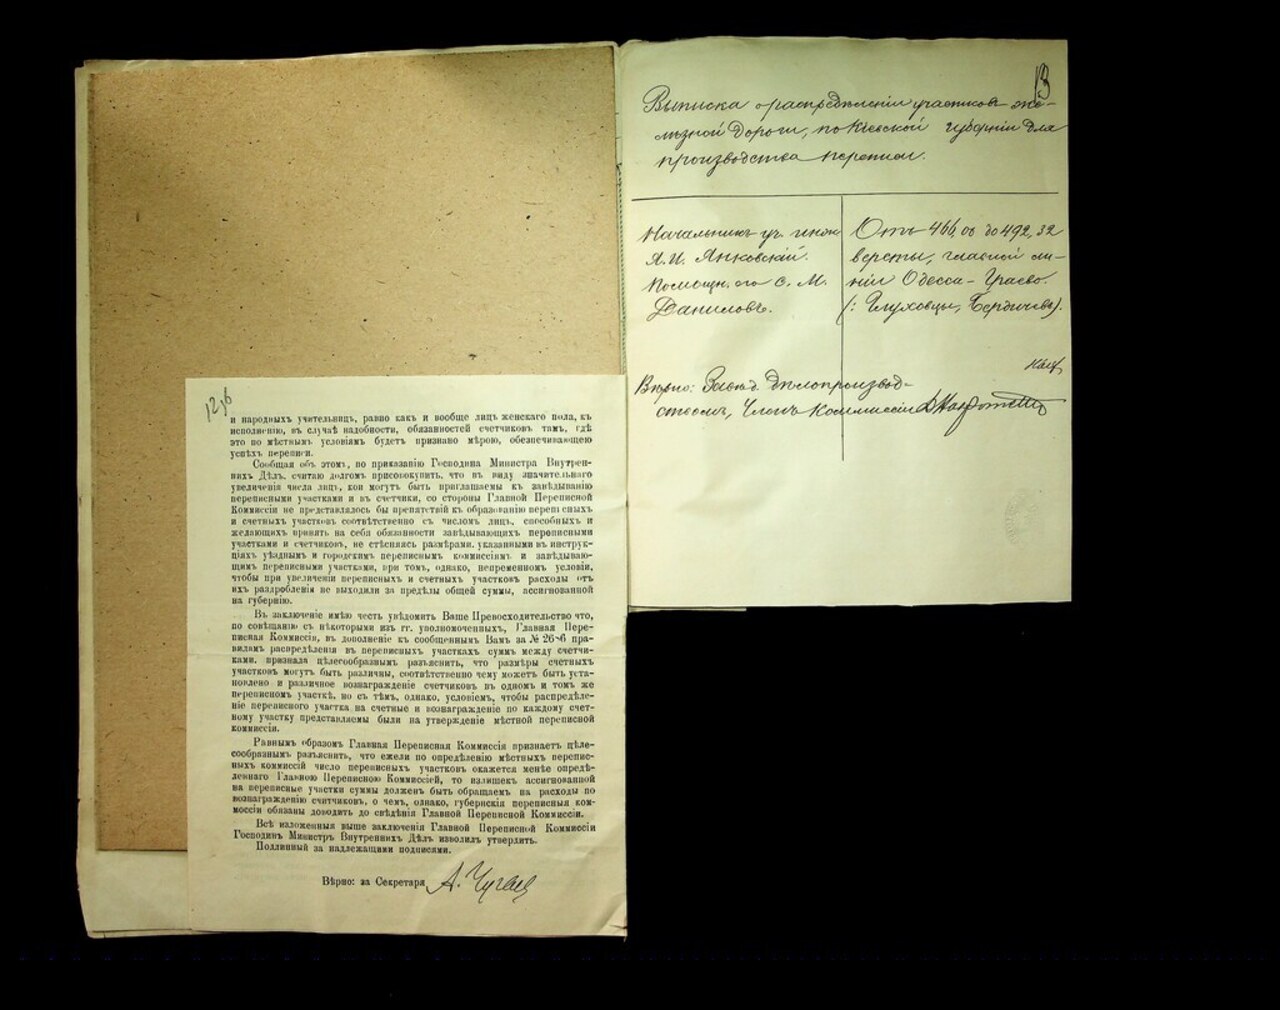 12 об
и народныхъ учительницъ, равно какъ и вообще лицъ женскаго пола, къ
исполненію, въ случаѣ надобности, обязанностей счетчиковъ тамъ, гдѣ
это по мѣстнымъ условіямъ будетъ признано мѣрою, обезпечивающею
успѣхъ переписи.
Сообщая объ этомъ, по приказанію Господина Министра Внутрен-
нихъ Дѣлъ, считаю долгомъ присовокупить, что въ виду значительнаго
увеличенія числа лицъ, кои могутъ быть приглашаемы къ завѣдыванію
переписными участками и въ счетчики, со стороны Главной Переписной
Коммиссіи не представлялось бы препятствій къ образованію переписныхъ
и счетныхъ участковъ соотвѣтственно съ числомъ лицъ, способныхъ и
желающихъ принять на себя обязанности завѣдывающихъ переписными
участками и счетчиковъ, не стѣсняясь размѣрами, указанными въ инструк-
ціяхъ уѣзднымъ и городскимъ переписнымъ коммиссіямъ и завѣдываю-
щимъ переписными участками, при томъ, однако, непремѣнномъ условіи,
чтобы при увеличеніи переписныхъ и счетныхъ участковъ расходы отъ
ихъ раздробленія не выходили за предѣлы общей суммы, ассигнованной
на губернію.
Въ заключеніе имѣю честь увѣдомить Ваше Превосходительство что,
по совѣщанію съ нѣкоторыми изъ гг. уполномоченныхъ, Главная Пере-
писная Коммиссія, въ дополненіе къ сообщеннымъ Вамъ за № пра-
виламъ распредѣленія въ переписныхъ участкахъ суммъ между счетчи-
ками, признала цѣлесообразнымъ разъяснить, что размѣры счетныхъ
участковъ могутъ быть различны, соотвѣтственно чему можетъ быть уста-
новлено и различное вознагражденіе счетчиковъ въ одномъ и томъ же
переписномъ участкѣ, но съ тѣмъ, однако, условіемъ, чтобы распредѣле-
ніе переписного участка на счетные и вознагражденіе по каждому счет-
ному участку представляемы были на утвержденіе мѣстной переписной
коммиссіи.
Равнымъ образомъ Главная Переписная Коммиссія признаетъ цѣле-
сообразнымъ разъяснить, что ежели по опредѣленію мѣстныхъ перепис-
ныхъ коммиссій число переписныхъ участковъ окажется менѣе опредѣ-
леннаго Главною Переписною Коммиссіей, то излишекъ ассигнованной
на переписные участки суммы долженъ быть обращаемъ на расходы по
вознагражденію считчиковъ, о чемъ, однако, губернскія переписныя ком-
миссіи обязаны доводить до свѣдѣнія Главной Переписной Коммиссіи.
Всѣ изложенныя выше заключенія Главной Переписной Коммиссіи
Господинъ Министръ Внутреннихъ Дѣлъ изволилъ утвердить.
Подлинный за надлежащими подписями.
Вѣрно: за Секретаря А. Чугаев
13
Выписка о распредѣленіи участковъ же-
лѣзной дороги, по Кіевской губерніи для
производства переписи.
Начальникъ уч. инж.
А.И. Янковскій.
Помощн. его С. М.
Даниловъ.
Отъ 466,00 до 492,32
версты, главной ли-
ніи Одесса-Граево.
(: Глуховцы, Бердичевъ).
Вѣрно: Завѣд. дѣлопроизвод-
ствомъ, Членъ Коммиссіи